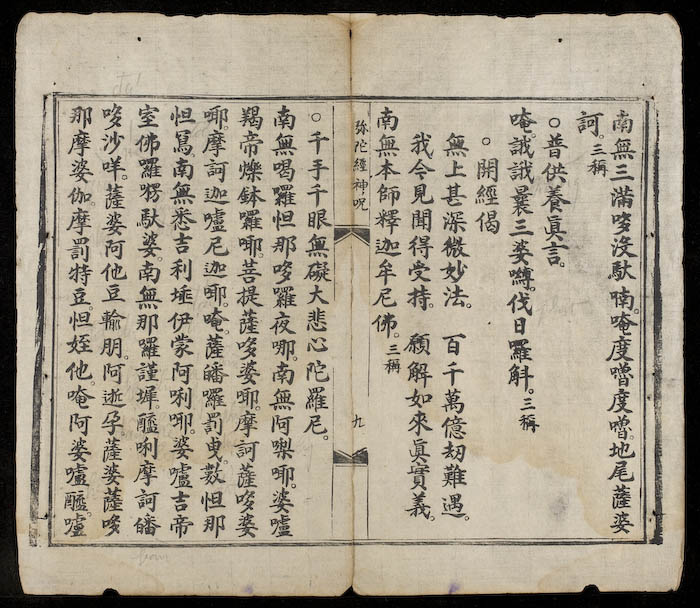 南無三滿哆沒馱喃。唵度嚕度嚕。地尾薩婆
訶。三稱
○普供養眞言。
唵。誐誐曩三婆嚩。伐日羅斛。三稱
○開經偈
無上甚深微妙法。 百千萬億劫難遇。
我今見聞得受持。 願解如來眞實義。
南無本師釋迦牟尼佛。三稱
弥陀經神咒 九
○千手千眼無礙大悲心陀羅尼。
南無喝羅怛那哆羅夜哪。南無阿唎哪。婆嚧
羯帝爍鉢羅哪。菩提薩哆婆哪。摩訶薩哆婆
哪。摩訶迦嚧尼迦哪。唵。薩皤羅罰曳。數怛那
怛寫南無悉吉利埵伊蒙阿利哪。婆嚧吉帝
室佛羅楞馱婆。南無那羅謹墀。醯唎摩訶皤
哆沙咩。薩婆阿他豆輸朋。阿逝孕薩婆薩哆
那摩婆伽。摩罰特豆怛姪他。唵阿婆嚧醯。嚧